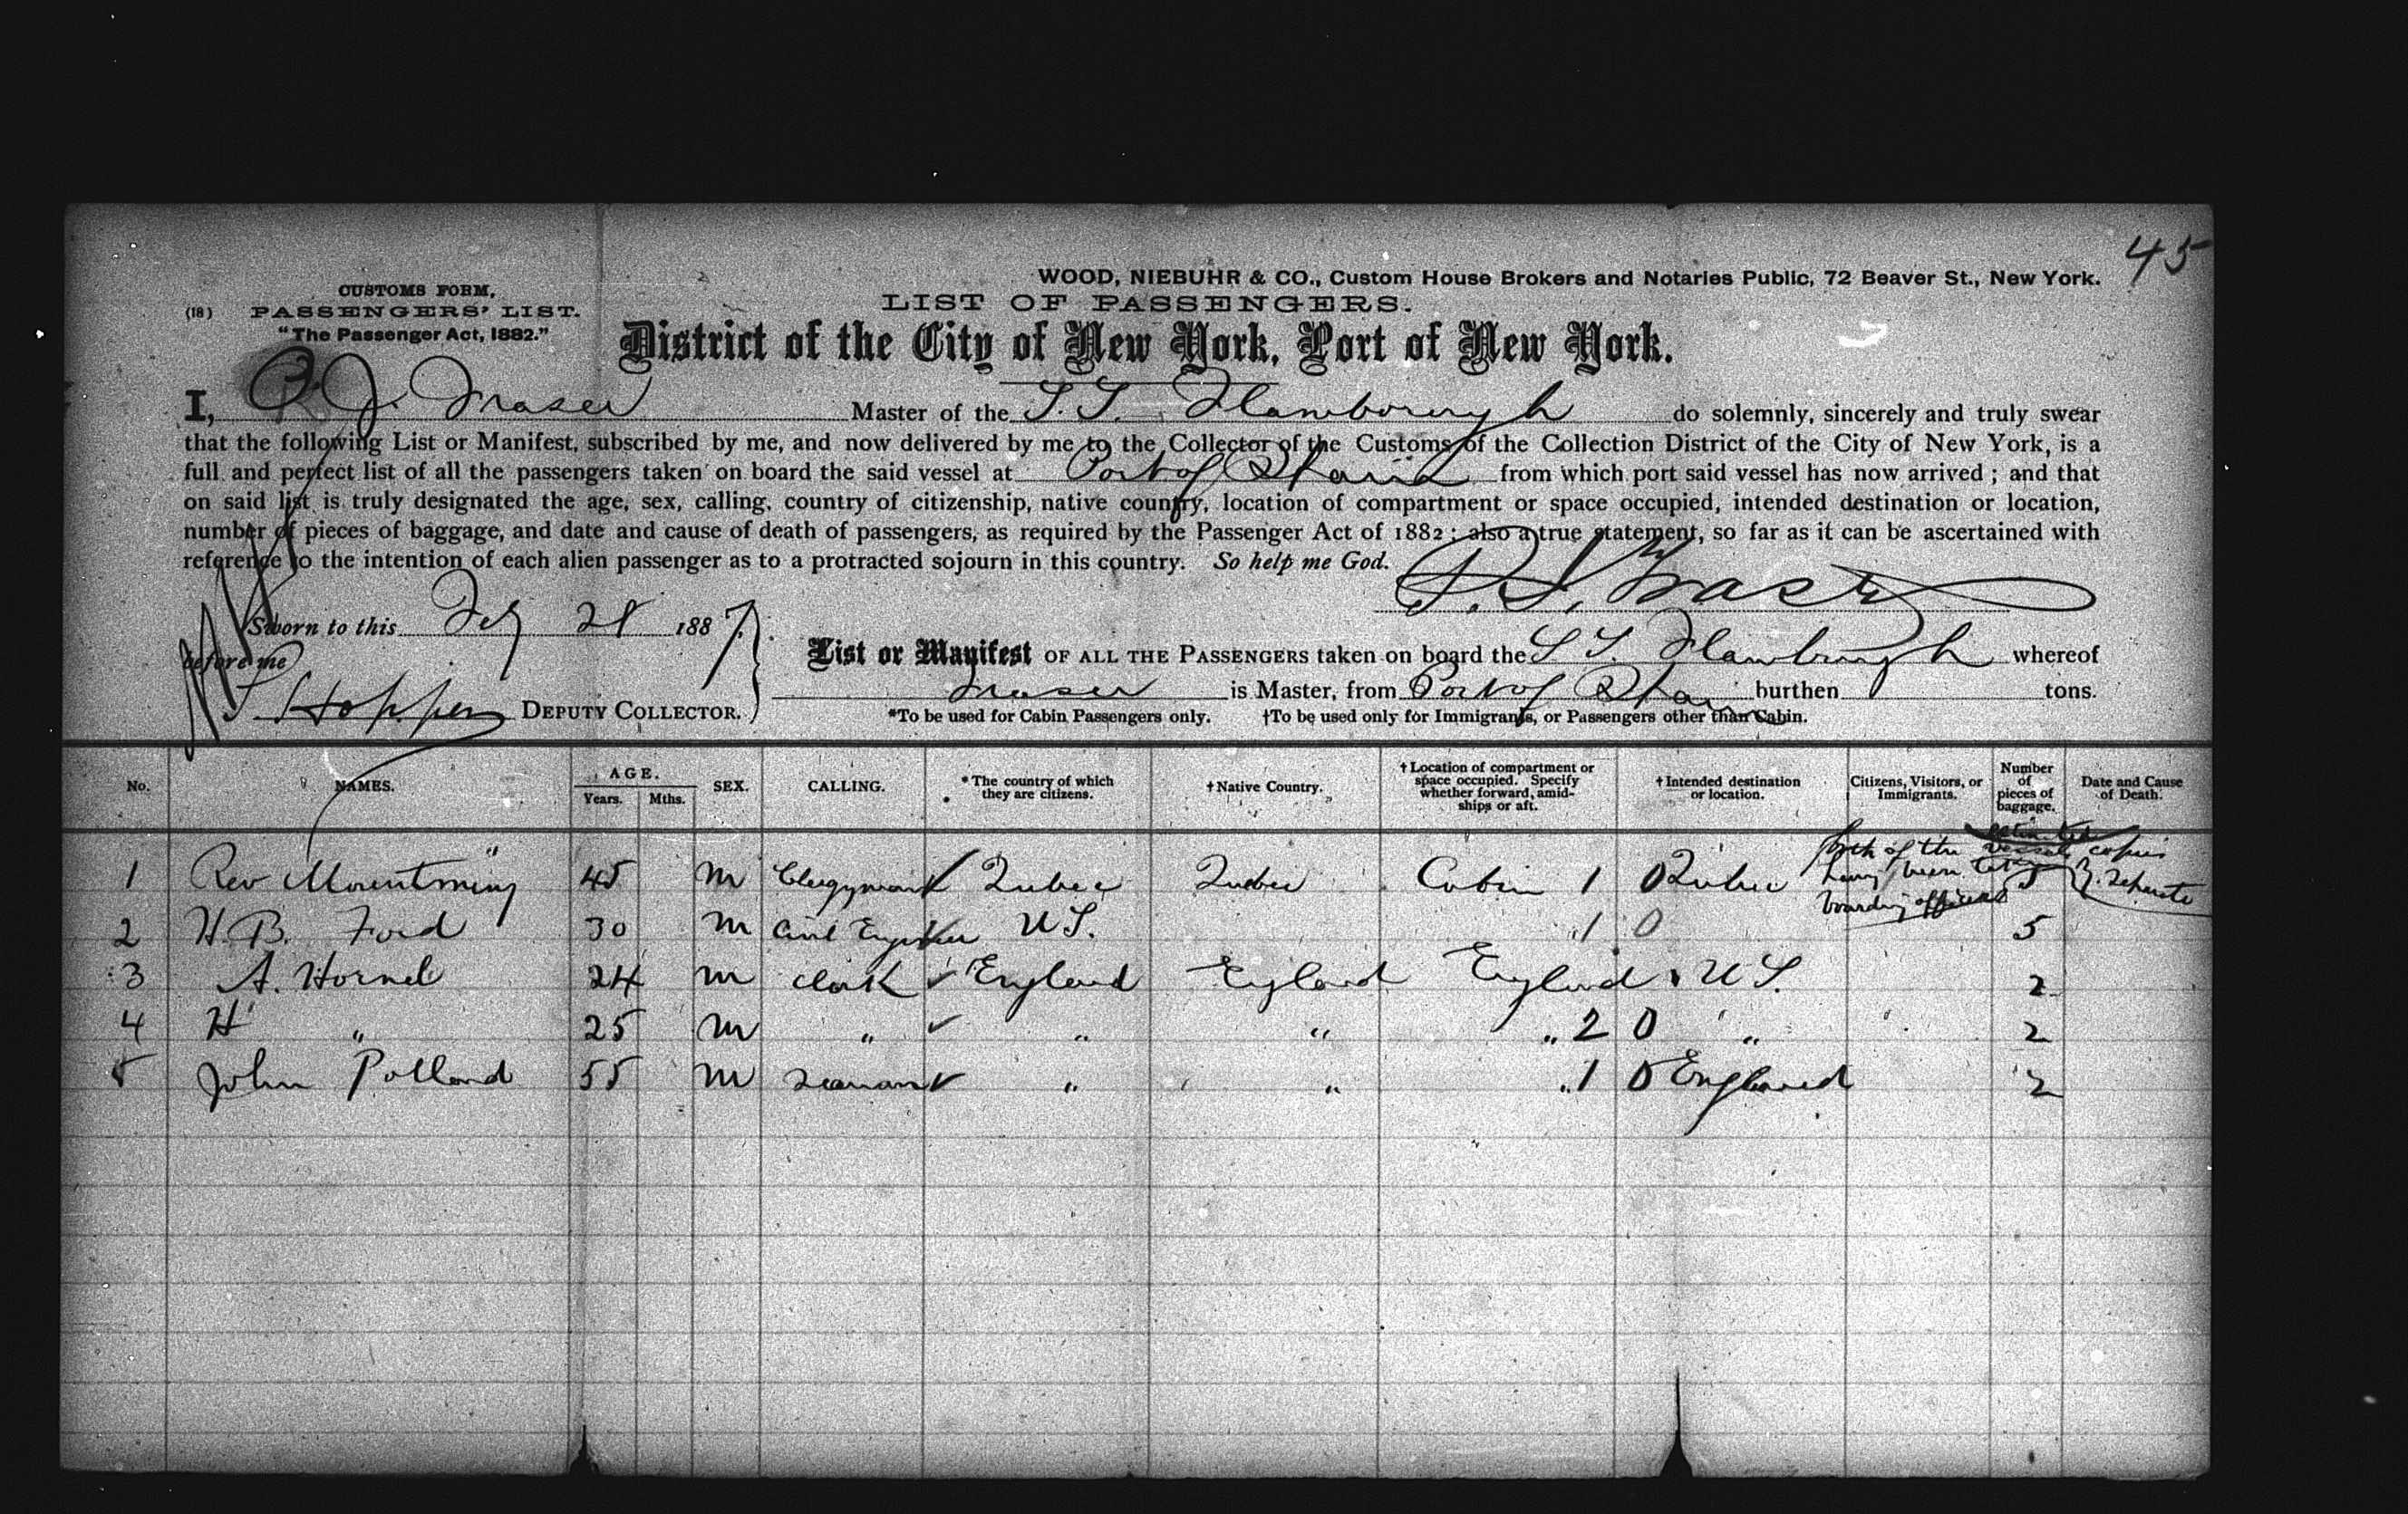 45
WOOD, NIEBUHR & CO., Custom House Brokers and Notaries Public, 72 Beaver St., New York.
CUSTOMS FORM,
(18) PASSENGERS' LIST.
"The Passenger Act, 1882."
LIST OF PASSENGERS.
District of the City of New York, Port of New York.
I, P. J. Fraser Master of the S.S. Flamborough do solemnly, sincerely and truly swear
that the following List or Manifest, subscribed by me, and now delivered by me to the Collector of the Customs of the Collection District of the City of New York, is a
full and perfect list of all the passengers taken on board the said vessel at Port of Spain from which port said vessel has now arrived; and that
on said list is truly designated the age, sex, calling, country of citizenship, native country, location of compartment or space occupied, intended destination or location,
number of pieces of baggage, and date and cause of death of passengers, as required by the Passenger Act of 1882; also a true statement, so far as it can be ascertained with
reference to the intention of each alien passenger as to a protracted sojourn in this country. So help me God.
P. J. Fraser
Sworn to this Feby 28 1887.
before me
Hopper DEPUTY COLLECTOR.
List or Manifest OF ALL THE PASSENGERS taken on board the S S. Flamborough whereof
Fraser is Master, from Port of Spain burthen tons.
*To be used for Cabin Passengers only. †To be used only for Immigrants, or Passengers other than Cabin.
No. NAMES. AGE. Years. Mths. SEX. CALLING. *The country of which they are citizens. †Native Country. †Location of compartment or space occupied. Specify whether forward, amidships or aft. †Intended destination or location. Citizens, Visitors, or Immigrants. Number of pieces of baggage. Date and Cause of Death.
both of the vessels copies
having been
boarding officer
1 Rev 45 M Clergyman Quebec Quebec Cabin 1 0 Quebec 5
2 H. B. Ford 30 M Civil Engineer U S. " 1 0 5
3 A. Hornel 24 M Clerk England England England U S. 2
4 H " 25 M " " " " 2 0 " 2
5 John Polland 55 M " " " 1 0 England 2